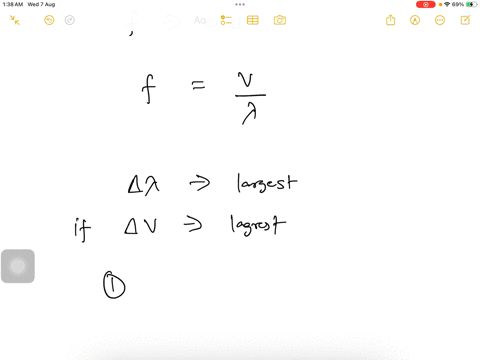 1:38 AM Wed 7 Aug 69%
Aa
f = v/λ
Δλ → largest
if ΔV → lagrest
①